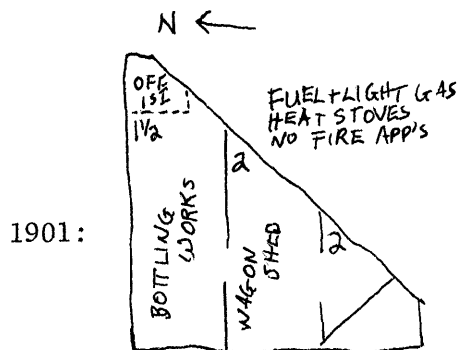 N
OFF
1st
1½
FUEL+LIGHT GAS
HEAT STOVES
NO FIRE APP'S
2
2
1901:
BOTTLING
WORKS
WAGON
SHED